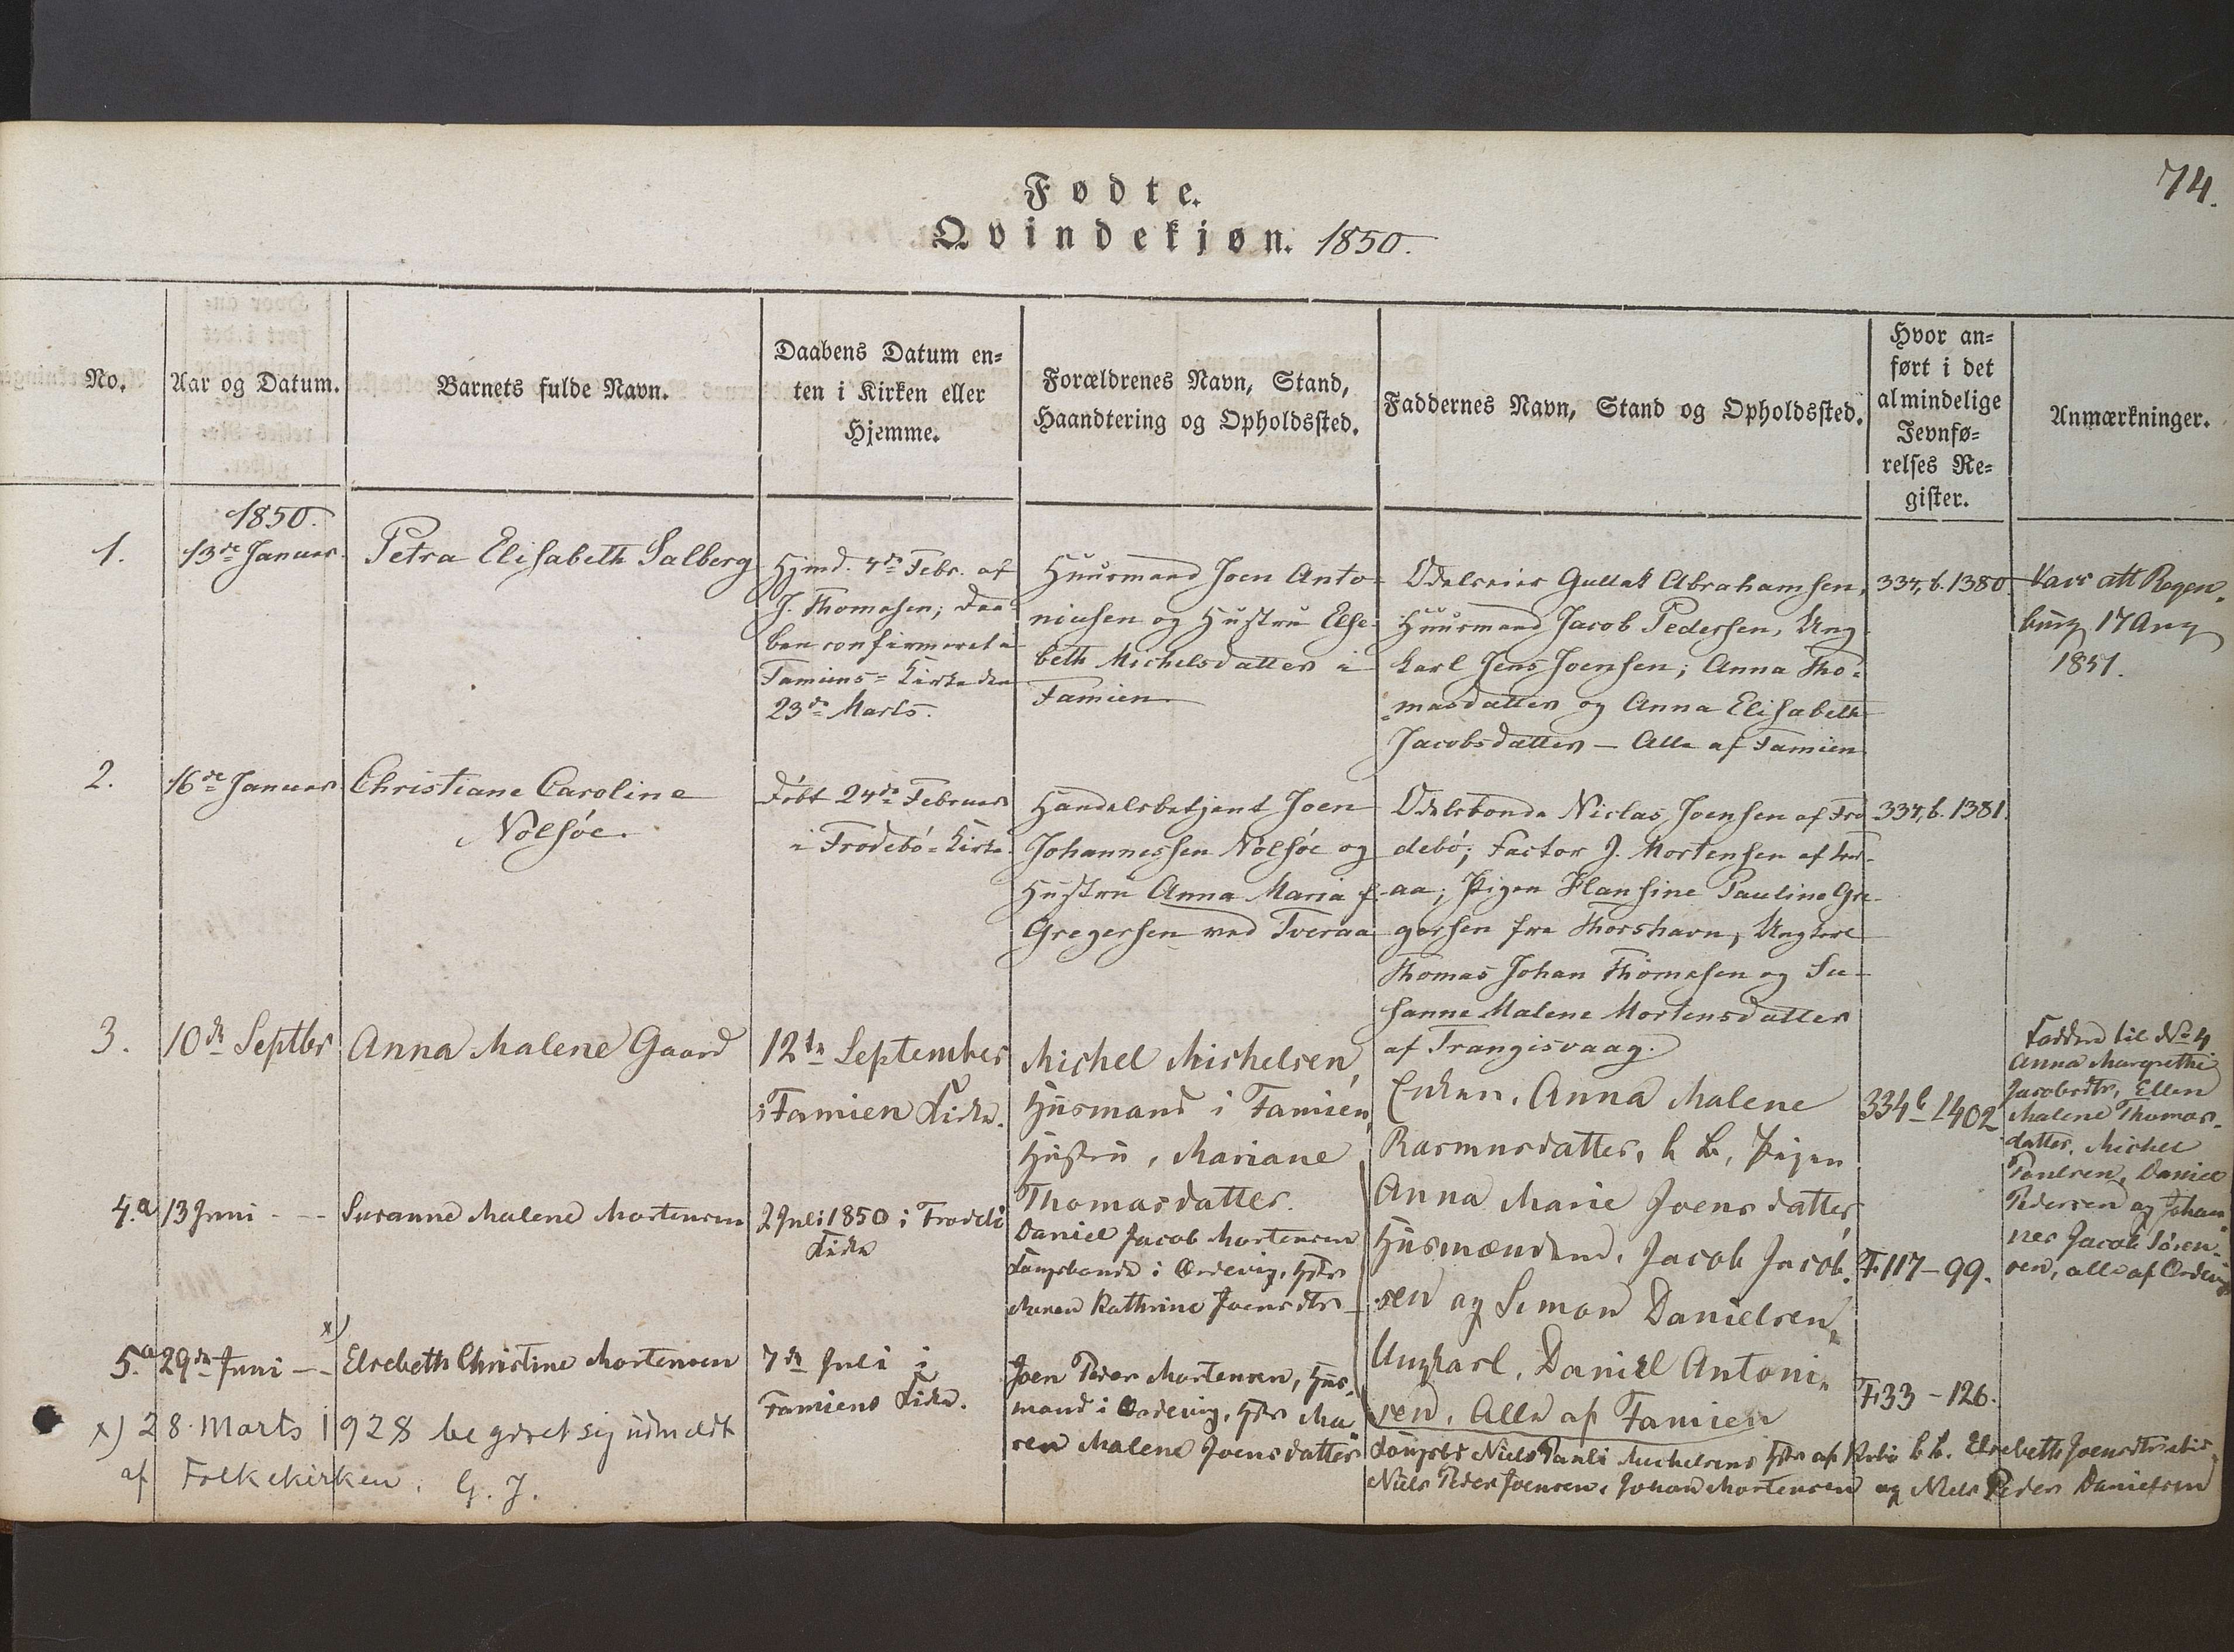 74.
Fødte.
Qvindekjøn. 1850.
No.
Aar og Datum.
Barnets fulde Navn.
Daabens Datum en-
ten i Kirken eller
Hjemme.
Forældrenes Navn, Stand,
Haandtering og Opholdssted.
Faddernes Navn, Stand og Opholdssted.
Hvor an-
ført i det
almindelige
Jevnfø-
relses Re-
gister.
Anmærkninger.
1850.
1.
13de Januar.
Petra Elisabeth Salberg
Hjmd. 4de Febr. af
J. Thomasen; Daa-
ben confirmeret i
Famiens-Kirke den
23de Marts.
Huusmand Joen Anto-
niusen og Hustru Else-
beth Michelsdatter i
Famien
Odelseier Gullak Abrahamsen,
Huusmand Jacob Pedersen, Ung-
karl Jens Joensen; Anna Tho-
masdatter og Anna Elisabeth
Jacobsdatter - Alle af Famien
334, b. 1380.
Vacc att Regen-
burg 17 Aug
1851.
2.
16de Januar
Christiane Caroline
Nolsöe.
Döbt 24de Februar
i Frodebö-Kirke.
Handelsbetjent Joen
Johannessen Nolsöe og
Hustru Anna Maria f.
Gregersen ved Tveraa
Odelsbonde Niclas Joensen af Fro-
debö; Factor J. Mortensen af Tver-
aa; Pigen Hansine Pauline Gre-
gersen fra Thorshavn, Ungkarl
Thomas Johan Thomasen og Su-
sanne Malene Mortensdatter
af Trangisvaag.
334, b. 1381.
3.
10de Septbr
Anna Malene Gaard
12te September
i Famien Kirke.
Michel Michelsen,
Husmand i Famien,
Hustru, Mariane
Thomasdatter.
Enken, Anna Malene
Rasmusdatter, h. b., Pigen
Anna Marie Joensdatter,
Husmændene, Jacob Jacob-
sen og Simon Danielsen,
Ungkarl, Daniel Antoni-
sen, Alle af Famien
334b 1402
Faddere til No 4
Anna Margrethe
Jacobsdtr, Ellen
Malene Thomas-
datter, Michel
Poulsen, Daniel
Pedersen og Johan-
nes Jacob Sören-
sen, alle af Ordevig
4.a
13 Juni - - -
Susanne Malene Mortensen
2 Juli 1850 i Frodebö
Kirke
Daniel Jacob Mortensen
Kongsbonde i Ordevig, Hstr
Maren Kathrine Joensdtr
F. 117-99.
5.a
29de Juni - -
x)
Elsebeth Christine Mortensen
7de Juli i
Famiens Kirke.
Joen Peder Mortensen, Hus-
mand i Ordevig, Hstr Ma-
ren Malene Joensdatter
Kongsb Niels Pauli Michelsens Hstr af h. b. Elsebeth Joensdtr
Niels Peder Joensen, Johan Mortensen og Niels Peder Danielsen
F. 33-126.
x) 28. Marts 1928 begæret sig udmeldt
af Folkekirken. G. J.